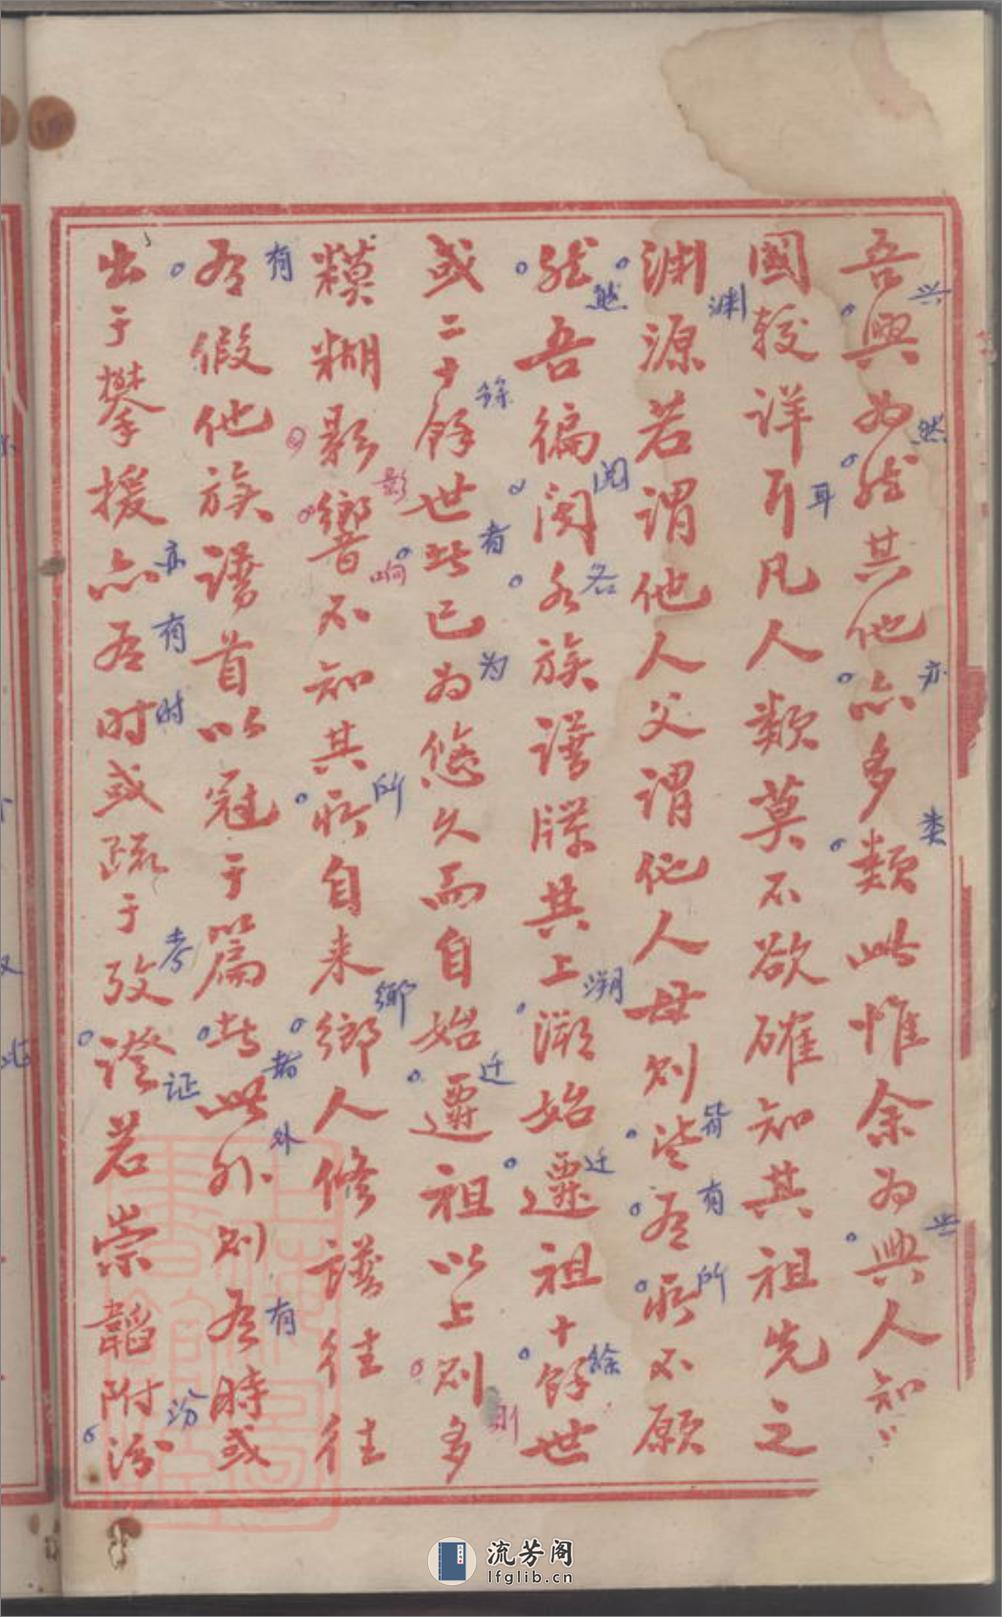 吾興為然其他亦多類此惟余為興人知
國較詳耳凡人類莫不欲確知其祖先之
淵源若謂他人父謂他人母則皆有所不願
然吾徧閱各族譜牒其上溯始遷祖十餘世
或二十餘世者已為悠久而自始遷祖以上則多
糢糊影響不知其所自来鄉人修譜往往
有假他族譜首以冠于篇者此外則有時或
出于攀援亦有时或疏于攷證若崇韜附汾
兴
然
亦
类
兴
耳
渊
皆
有
所
然
阅
各
溯
迁
餘
餘
者
为
迁
则
影
响
所
鄉
有
者
外
有
亦
有
时
考
证
汾
流芳阁
lfglib.cn